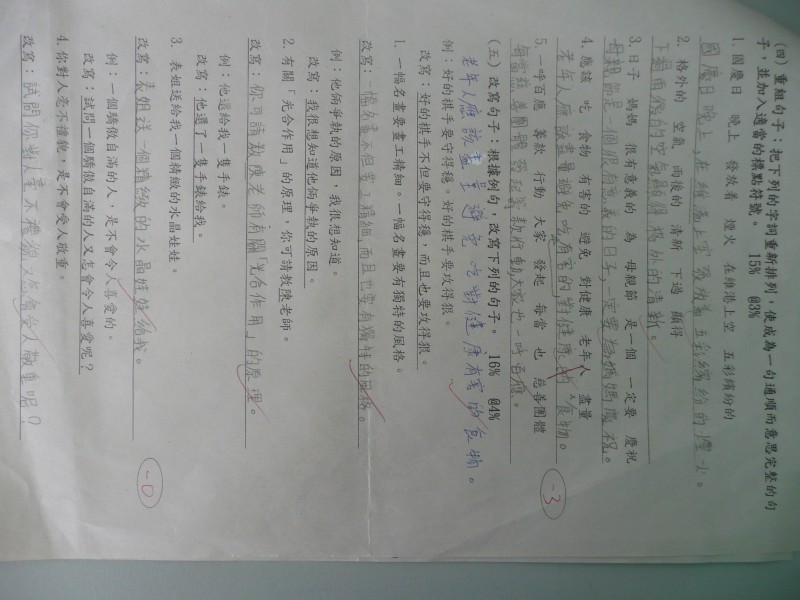 (四) 重組句子：把下列的字詞重新排列，使成為一句通順而意思完整的句
子，並加入適當的標點符號。 15% @3%
1. 國慶日 晚上 發放着 煙火 在維港上空 五彩繽紛的
國慶日晚上，在維港上空發放着五彩繽紛的煙火。
2. 格外的 空氣 雨後的 清新 下過 顯得
下過雨後的空氣顯得格外的清新。
3. 日子 媽媽 很有意義的 為 母親節 是一個 一定要 慶祝
母親節是一個很有意義的日子，一定要為媽媽慶祝。
4. 應該 吃 食物 有害的 避免 對健康 老年人 盡量
老年人應該盡量避免吃有害的對健康的食物。
5. 一呼百應 籌款 行動 大家 發起 每當 也 慈善團體
每當慈善團體發起籌款行動，大家也一呼百應。
老年人應該盡量避免吃對健康有害的食物。
-3
(五) 改寫句子：根據例句，改寫下列的句子。 16% @4%
例：好的棋手要守得穩，好的棋手要攻得狠。
改寫：好的棋手不但要守得穩，而且也要攻得狠。
1. 一幅名畫要畫工精細。一幅名畫要有獨特的風格。
改寫：一幅名畫不但要畫工精細，而且也要有獨特的風格。
例：他倆爭執的原因，我很想知道。
改寫：我很想知道他倆爭執的原因。
2. 有關「光合作用」的原理，你可請教陳老師。
改寫：你可請教陳老師有關「光合作用」的原理。
例：他還給我一隻手錶。
改寫：他還了一隻手錶給我。
3. 表姐送給我一個精緻的水晶娃娃。
改寫：表姐送一個精緻的水晶娃娃給我。
-0
例：一個驕傲自滿的人，是不會令人喜愛的。
改寫：試問一個驕傲自滿的人又怎會令人喜愛呢？
4. 你對人毫不禮貌，是不會受人敬重。
改寫：試問你對人毫不禮貌又怎會受人敬重呢？